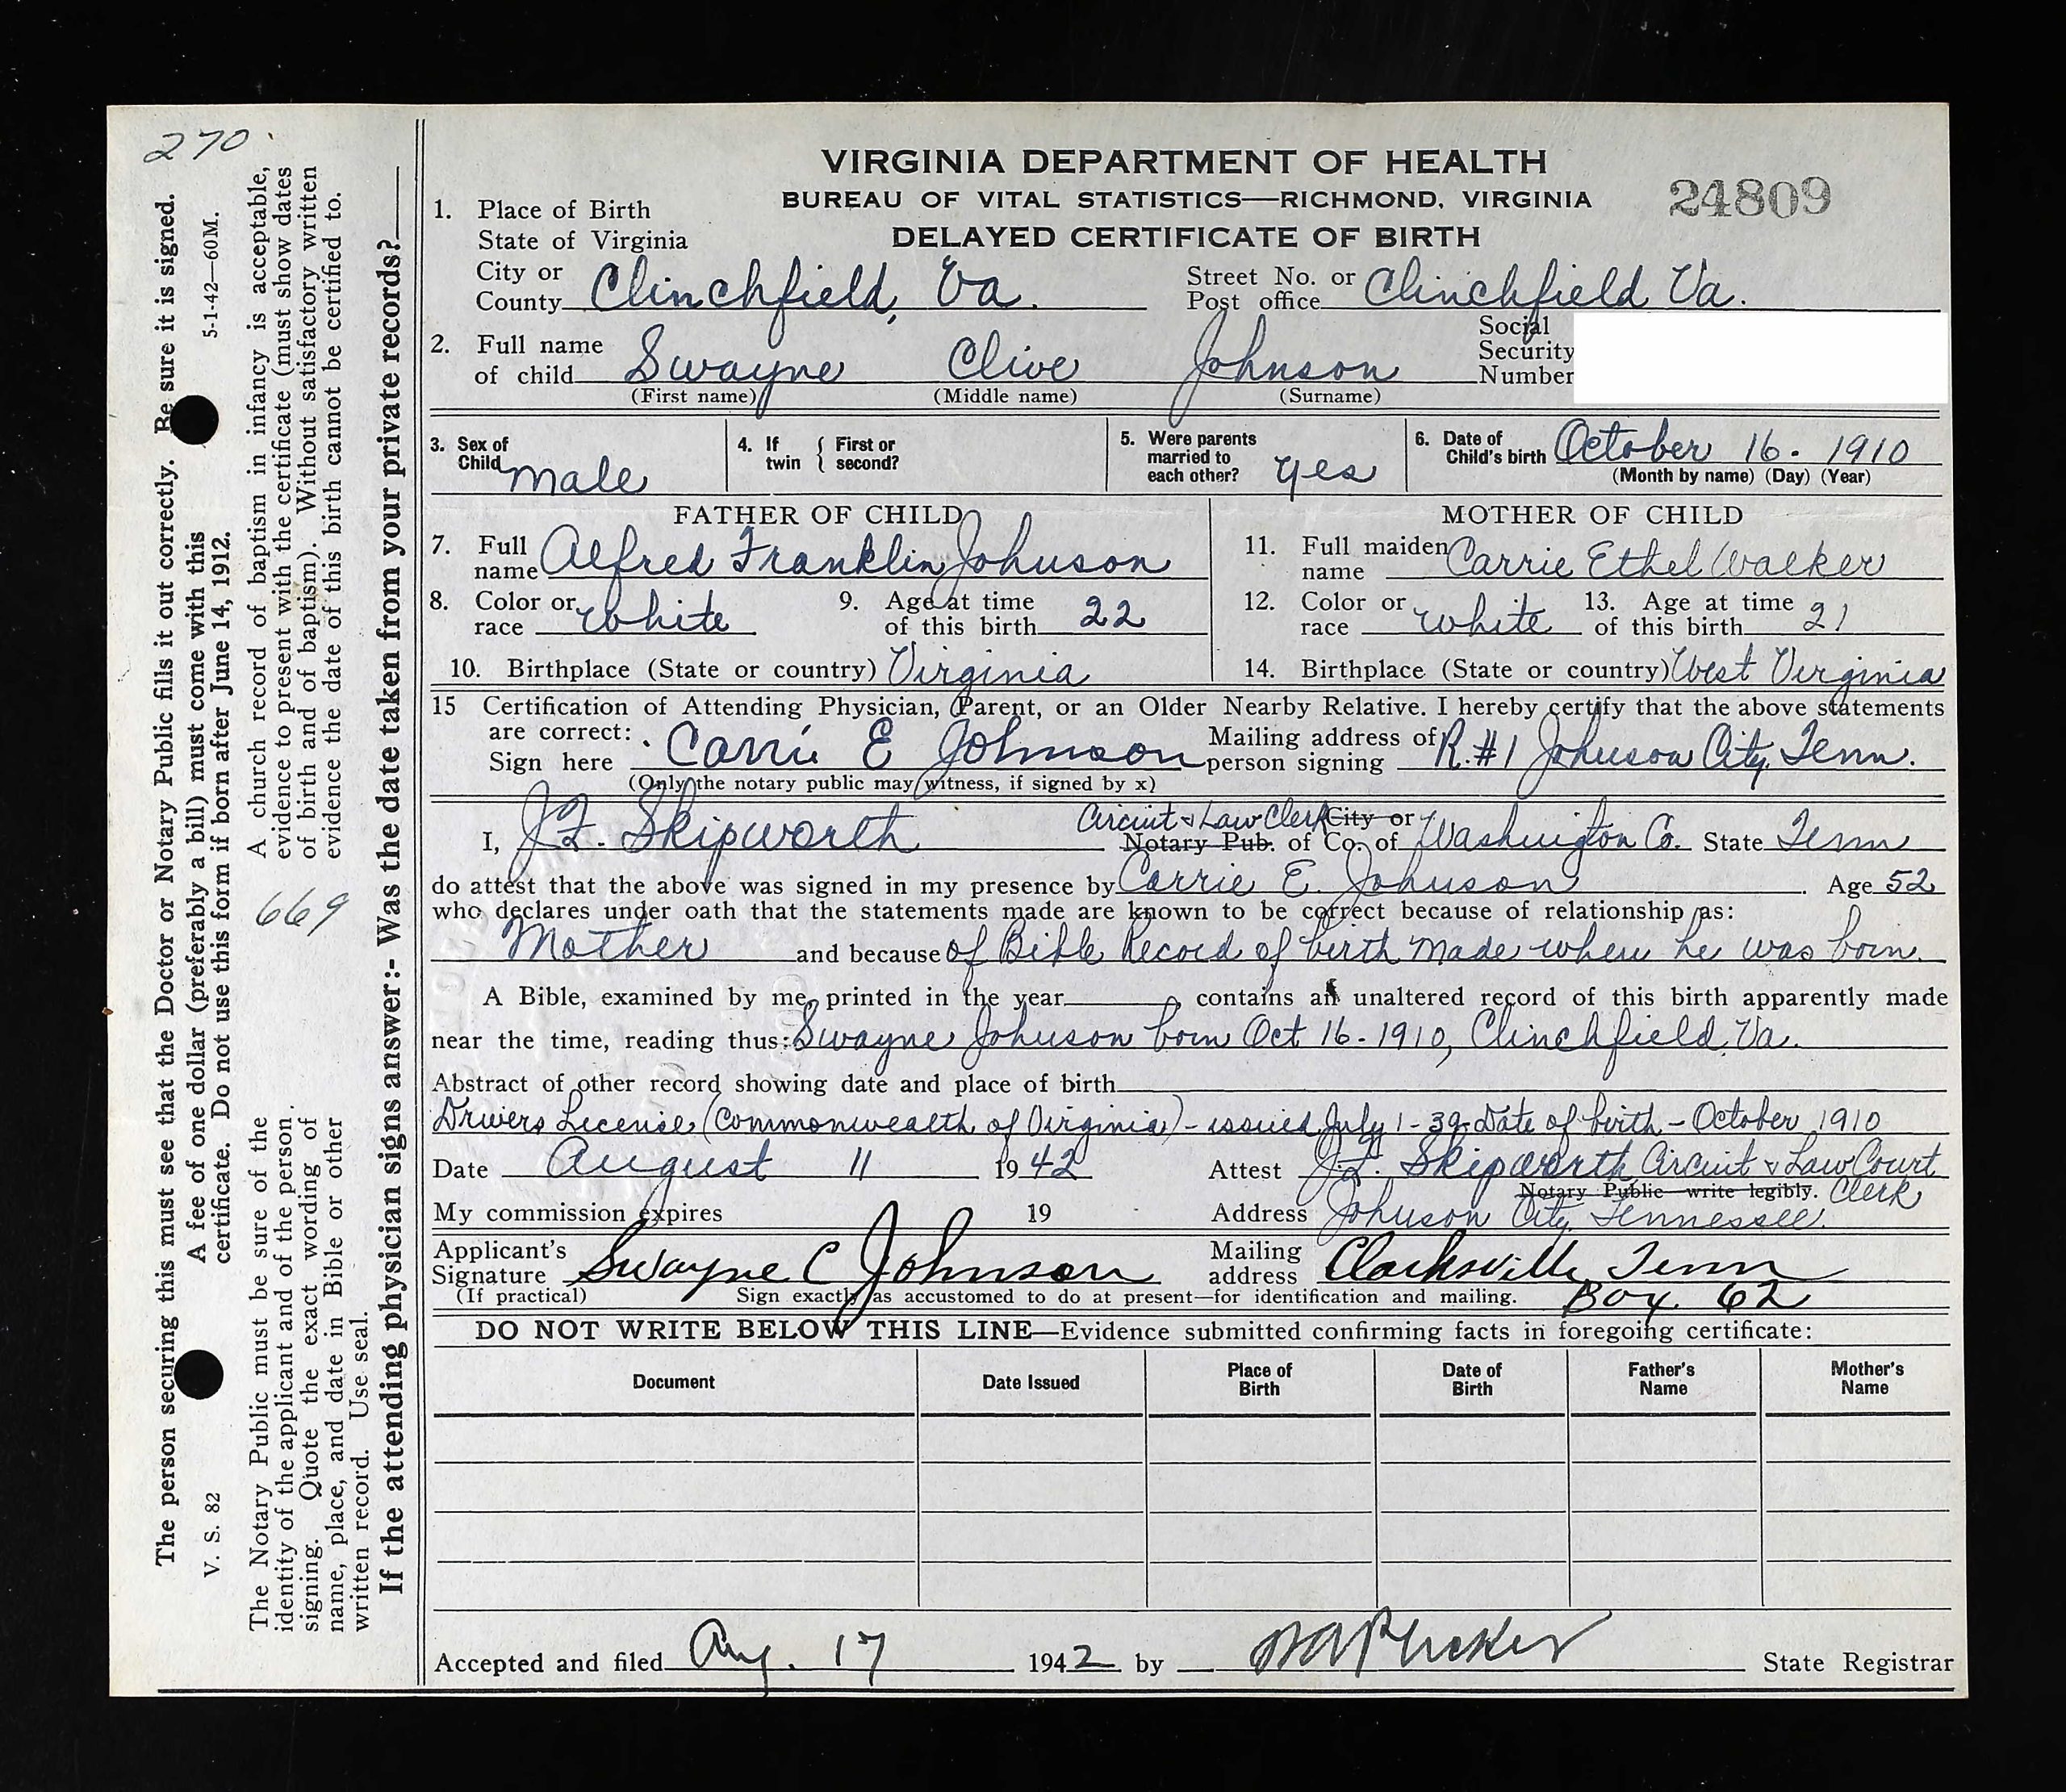 270
The person securing this must see that the Doctor or Notary Public fills it out correctly. Be sure it is signed.
V. S. 82
A fee of one dollar (preferably a bill) must come with this
5-1-42—60M.
certificate. Do not use this form if born after June 14, 1912.
The Notary Public must be sure of the
identity of the applicant and of the person
signing. Quote the exact wording of
name, place, and date in Bible or other
written record. Use seal.
669
A church record of baptism in infancy is acceptable,
evidence to present with the certificate (must show dates
of birth and of baptism). Without satisfactory written
evidence the date of this birth cannot be certified to.
If the attending physician signs answer:- Was the date taken from your private records?
VIRGINIA DEPARTMENT OF HEALTH
BUREAU OF VITAL STATISTICS—RICHMOND, VIRGINIA
24809
DELAYED CERTIFICATE OF BIRTH
1. Place of Birth
State of Virginia
City or County Clinchfield, Va. Street No. or Post office Clinchfield Va.
2. Full name of child Swayne Clive Johnson Social Security Number
(First name) (Middle name) (Surname)
3. Sex of Child male 4. If twin { First or second? 5. Were parents married to each other? yes 6. Date of Child's birth October 16 - 1910
(Month by name) (Day) (Year)
FATHER OF CHILD MOTHER OF CHILD
7. Full name Alfred Franklin Johnson 11. Full maiden name Carrie Ethel Walker
8. Color or race White 9. Age at time of this birth 22 12. Color or race White 13. Age at time of this birth 21
10. Birthplace (State or country) Virginia 14. Birthplace (State or country) West Virginia
15 Certification of Attending Physician, Parent, or an Older Nearby Relative. I hereby certify that the above statements
are correct:
Sign here Carrie E Johnson Mailing address of person signing R.#1 Johnson City, Tenn.
(Only the notary public may witness, if signed by x)
I, J.F. Skipworth Circuit & Law Clerk Notary Pub. of City or Co. of Washington Co. State Tenn
do attest that the above was signed in my presence by Carrie E. Johnson. Age 52
who declares under oath that the statements made are known to be correct because of relationship as:
Mother and because of Bible Record of birth made when he was born.
A Bible, examined by me, printed in the year , contains an unaltered record of this birth apparently made
near the time, reading thus: Swayne Johnson born Oct 16-1910, Clinchfield, Va.
Abstract of other record showing date and place of birth
Drivers License (Commonwealth of Virginia) - issued July 1-39 Date of birth - October 1910
Date August 11 1942 Attest J.F. Skipworth Circuit & Law Court Clerk
Notary Public write legibly.
My commission expires 19 Address Johnson City, Tennessee.
Applicant's Signature Swayne C Johnson Mailing address Clarksville, Tenn
(If practical) Sign exactly as accustomed to do at present—for identification and mailing. Box 62
DO NOT WRITE BELOW THIS LINE—Evidence submitted confirming facts in foregoing certificate:
Document Date Issued Place of Birth Date of Birth Father's Name Mother's Name
Accepted and filed Aug. 17 1942 by W A Plecker State Registrar